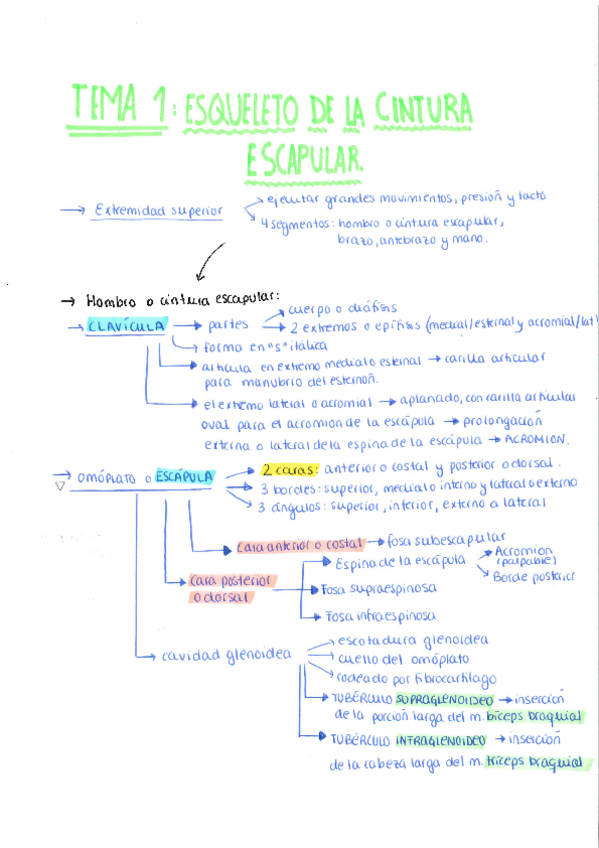 TEMA 1: ESQUELETO DE LA CINTURA
ESCAPULAR.
→ Extremidad superior → ejecutar grandes movimientos, presión y tacto
→ 4 segmentos: hombro o cintura escapular,
brazo, antebrazo y mano.
→ Hombro o cintura escapular:
→ CLAVÍCULA → partes → cuerpo o diáfisis
→ 2 extremos o epífisis (medial/esternal y acromial/lat)
→ forma en "s" itálica
→ articula en extremo medial o esternal → carilla articular
para manubrio del esternón.
→ el extremo lateral o acromial → aplanado, con carilla articular
oval para el acromion de la escápula → prolongación
externa o lateral de la espina de la escápula → ACROMION.
→ OMÓPLATO O ESCÁPULA → 2 caras: anterior o costal y posterior o dorsal.
→ 3 bordes: superior, medial o interno y lateral o externo
→ 3 ángulos: superior, inferior, externo a lateral
→ Cara anterior o costal → fosa subescapular
→ Cara posterior
o dorsal
→ Espina de la escápula → Acromion
(palpable)
→ Borde posterior
→ Fosa supraespinosa
→ Fosa infraespinosa
→ cavidad glenoidea → escotadura glenoidea
→ cuello del omóplato
→ rodeado por fibrocartílago
→ TUBÉRCULO SUPRAGLENOIDEO → inserción
de la porción larga del m. bíceps braquial
→ TUBÉRCULO INFRAGLENOIDEO → inserción
de la cabeza larga del m. tríceps braquial